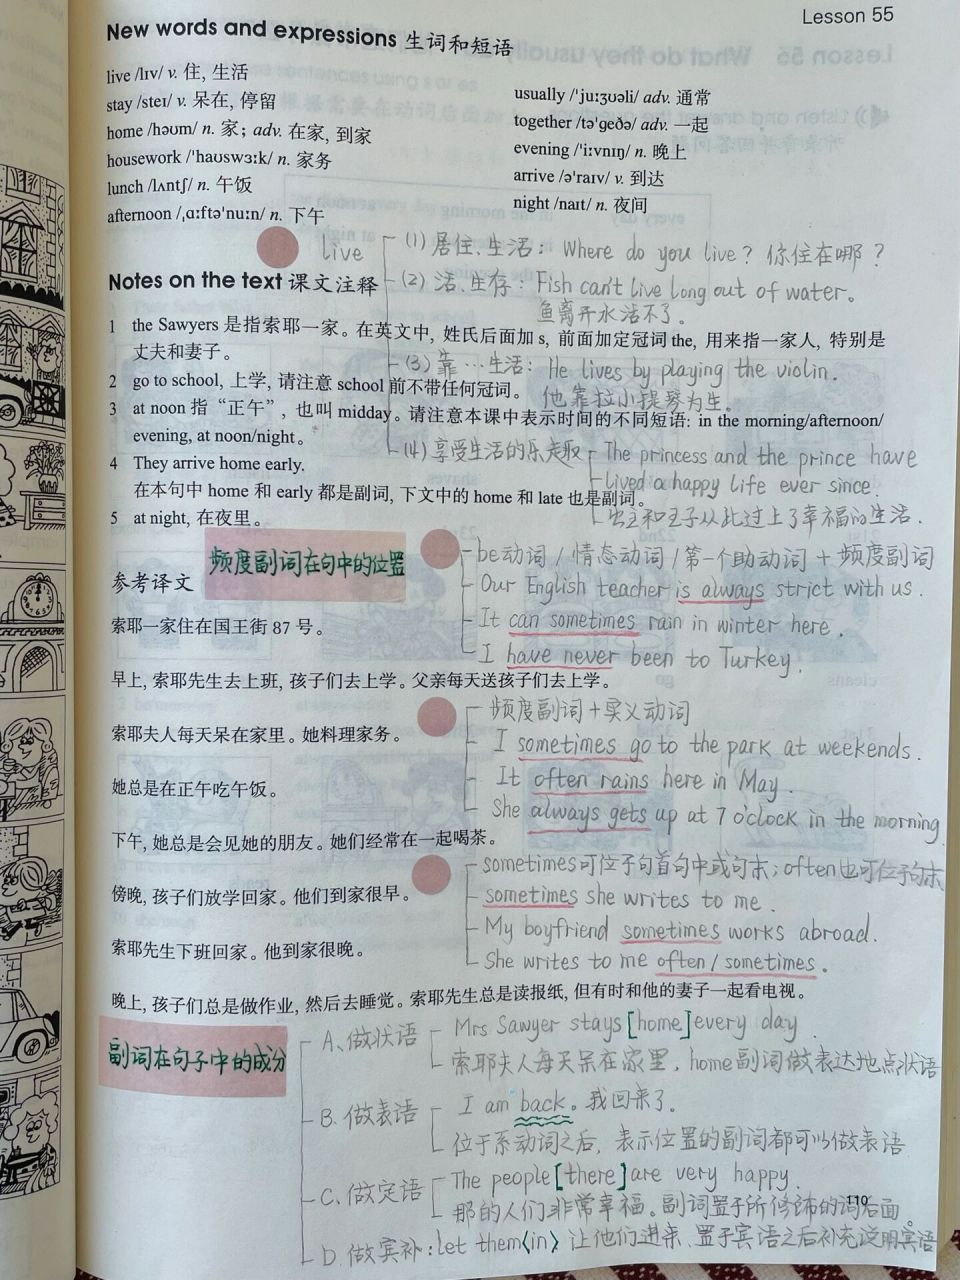 Lesson 55
New words and expressions 生词和短语
live /lɪv/ v. 住, 生活
stay /steɪ/ v. 呆在, 停留
home /həʊm/ n. 家；adv. 在家, 到家
housework /'haʊswɜːk/ n. 家务
lunch /lʌntʃ/ n. 午饭
afternoon /ˌɑːftə'nuːn/ n. 下午
usually /'juːʒʊəli/ adv. 通常
together /tə'geðə/ adv. 一起
evening /'iːvnɪŋ/ n. 晚上
arrive /ə'raɪv/ v. 到达
night /naɪt/ n. 夜间
live
(1) 居住、生活：Where do you live? 你住在哪？
(2) 活、生存：Fish can't live long out of water.
鱼离开水活不了。
(3) 靠…生活：He lives by playing the violin.
他靠拉小提琴为生。
(4) 享受生活的乐趣
The princess and the prince have
lived a happy life ever since.
公主和王子从此过上了幸福的生活.
Notes on the text 课文注释
1 the Sawyers 是指索耶一家。在英文中, 姓氏后面加 s, 前面加定冠词 the, 用来指一家人, 特别是
丈夫和妻子。
2 go to school, 上学, 请注意 school 前不带任何冠词。
3 at noon 指“正午”, 也叫 midday。请注意本课中表示时间的不同短语: in the morning/afternoon/
evening, at noon/night。
4 They arrive home early.
在本句中 home 和 early 都是副词, 下文中的 home 和 late 也是副词。
5 at night, 在夜里。
频度副词在句中的位置
be动词 / 情态动词 / 第一个助动词 + 频度副词
Our English teacher is always strict with us.
It can sometimes rain in winter here.
I have never been to Turkey.
频度副词+实义动词
I sometimes go to the park at weekends.
It often rains here in May.
She always gets up at 7 o'clock in the morning
sometimes可位于句首句中或句末；often也可位于句末
sometimes she writes to me.
My boyfriend sometimes works abroad.
She writes to me often / sometimes.
参考译文
索耶一家住在国王街 87 号。
早上, 索耶先生去上班, 孩子们去上学。父亲每天送孩子们去上学。
索耶夫人每天呆在家里。她料理家务。
她总是在正午吃午饭。
下午, 她总是会见她的朋友。她们经常在一起喝茶。
傍晚, 孩子们放学回家。他们到家很早。
索耶先生下班回家。他到家很晚。
晚上, 孩子们总是做作业, 然后去睡觉。索耶先生总是读报纸, 但有时和他的妻子一起看电视。
副词在句子中的成分
A、做状语
Mrs Sawyer stays [home] every day
索耶夫人每天呆在家里, home副词做表达地点状语
B. 做表语
I am back。我回来了。
位于系动词之后, 表示位置的副词都可以做表语
C、做定语
The people [there] are very happy.
那的人们非常幸福。副词置于所修饰的词后面。
D. 做宾补：let them <in> 让他们进来、置于宾语之后补充说明宾语
110